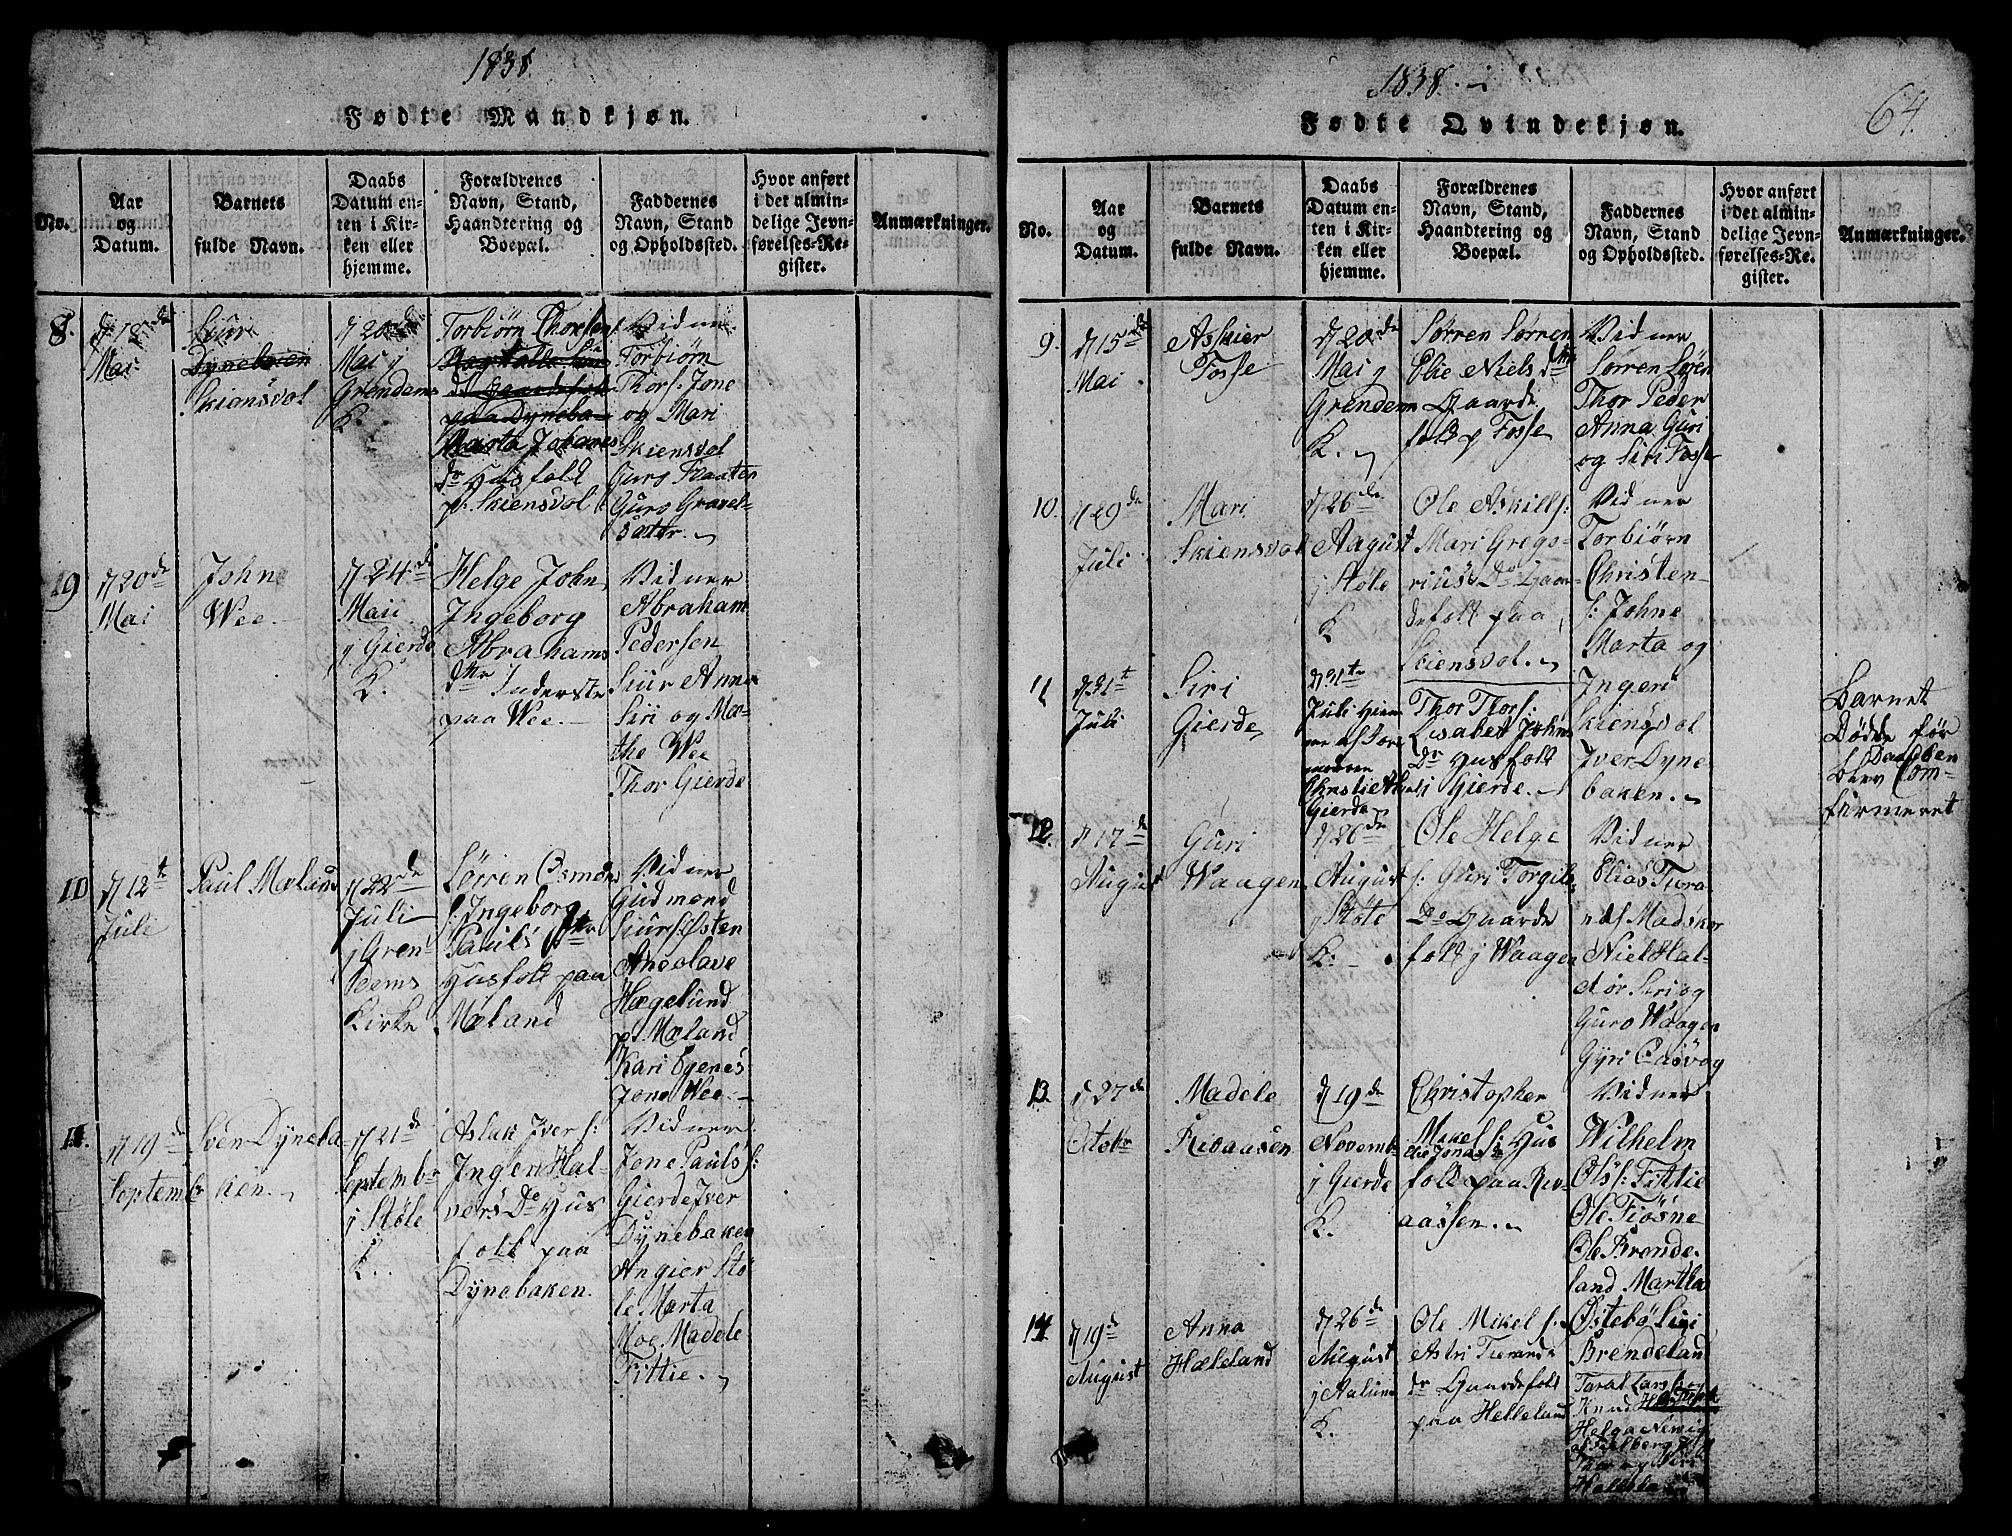 1838
Fødte Mandkjøn.
No.
Aar
og
Datum.
Barnets
fulde Navn.
Daabs
Datum en-
ten i Kir-
ken eller
hjemme.
Forældrenes
Navn, Stand,
Haandtering og
Boepæl.
Faddernes
Navn, Stand
og Opholdssted.
Hvor anført
i det almin-
delige Jevn-
førelses-Re-
gister.
Anmærkninger.
8.
d 18de
Mai
Siur
Dynebaken
Skiensvol
d 20de
Mai j
Grendems
K.
Torbiørn Thorsen
paa Dyneba
Marta Johanes
dr Husfolk
p. Skiensvol
Vidner
Torbiørn
Thors: Jone
og Mari
Skiensvol
Guro Flaaten
Guro Gravel-
sæter.
19
d 20de
Mai
John
Wee.
d 24de
Maii
j Gierde
K.
Helge John
Ingeborg
Abrahams
dtr Inderste
paa Wee.
Vidner
Abraham
Pedersen
Siur Anna
Siri og Mar-
the Wee
Thor Gierde
10
d 12t
Juli
Paul Mæland
d 22de
Juli
j Gren-
dems
Kirke
Sørren Osmon
s: Ingeborg
Pauls dtr
Husfolk paa
Mæland
Vidner
Gudmond
Siurs: Østen
Aneolave
Hægelund
p. Mæland
Kari Egenes
Jone Wee.
11.
d 19de
Septemb
Iven Dyneba
ken.
d 21de
Septembr
j Støle
K.
Aslak Iver s:
Ingen Hal-
vors Dr Hus
folk paa
Dynebaken.
Vidner
Jone Pauls s:
Gierde Iver
Dynebaken
Angier Stø
le Marta
og Madele
Fittie.
1838.
64.
Fødte Qvindekjøn.
No.
Aar
og
Datum.
Barnets
fulde Navn.
Daabs
Datum en-
ten i Kir-
ken eller
hjemme.
Forældrenes
Navn, Stand,
Haandtering og
Boepæl.
Faddernes
Navn, Stand
og Opholdssted.
Hvor anført
i det almin-
delige Jevn-
førelses-Re-
gister.
Anmærkninger.
9.
d 15de
Mai
Asskier
Fosse
d 20de
Mai j
Grendem
K.
Sørren Sørren
Elie Niels dtr
Gaarde
folk p Fosse
Vidner
Sørren Søren
Thor Peder
Anna Guri
og Siri Fosse
10.
d 29de
Juli
Mari
Skiensvol
d 26de
August
j Støle
K
Ole Askills:
Mari Grego-
rius Dr Gaar-
defolk paa
Skiensvol.
Vidner
Torbiørn
Christen-
s: Johne
Marta og
Ingeri
Skiensvol
Iver Dyne
baken.
11
d 31t
Juli
Siri
Gierde
d 31te
Juli Hiem
me af Jor
modren
Gierde
Thor Thors:
Lisabet Johns
Dr Husfolk
i Gierde.
Barnet
Døde før
Daaben
blev Com-
firmeret
12.
d 17de
August
Guri
Waagen
d 26de
August
j Støle
K.
Ole Helge
s: Guri Torgils
Dr Gaarde
folk j Waagen
Vidner
Elias Tiora
Niel Hal-
dor Siri og
Guro Waagen
Gyri Aasvog
13.
d 27de
Octobr
Madele
Revaasen
d 19de
Novemb
j Gierde
K.
Christopher
Mikel s: Hus
Elie Jonas Dr
folk paa Rev-
aassen.
Vidner
Wilhelm
Ols s: Fittie
Ole Fiøsne
Ole Brende-
land Martha
Østebø Siri
Brendeland
14.
d 19de
August
Anna
Hæleland
d 26de
August
j Aalund
K.
Ole Mikel s:
Astri Tieranda
dr Gaardefolk
paa Helleland
Taral Lars s: og
Knud
Helga Nemig
af Fielberg
Helleland